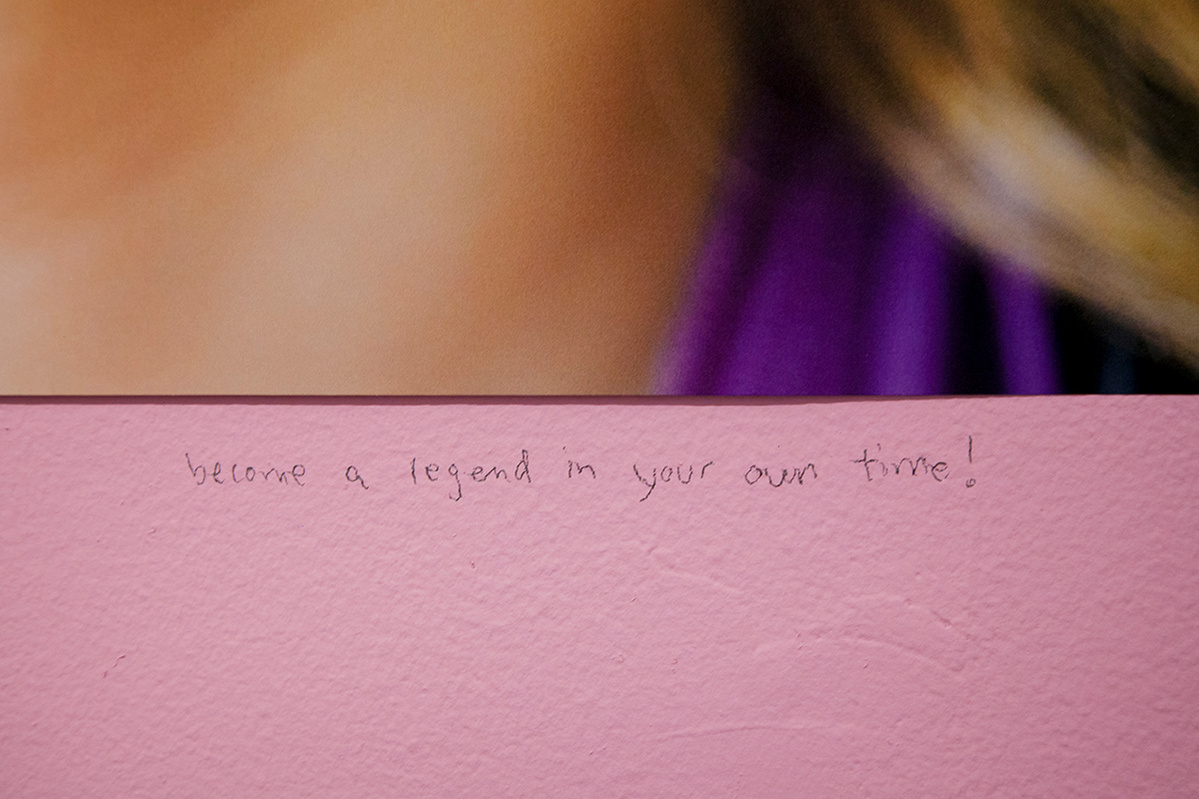 become a legend in your own time!